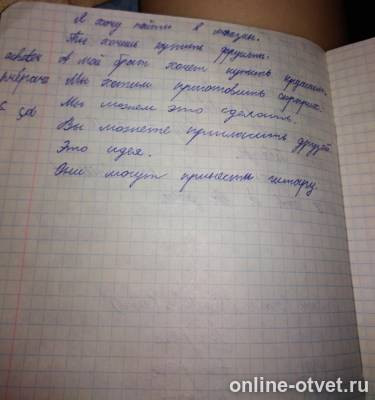 Я хочу пойти в магазин.
Ты хочешь купить фрукты.
А мой брат хочет купить круассан.
Мы хотим приготовить сюрприз.
Мы можем это сделать.
Вы можете пригласить друзей.
Это идея.
Они могут принести гитару.
online-otvet.ru